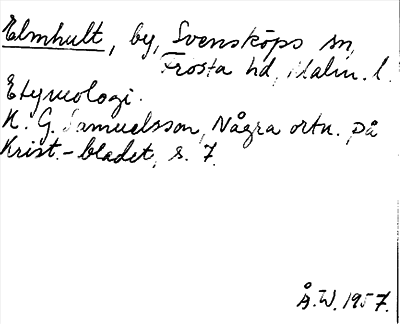 Elmhult, by, Svensköps sn,
Frosta hd, Malm. l.
Etymologi.
N. G. Samuelsson, Några ortn. på
Krist.-bladet, s. 7.
Å.W. 1957.